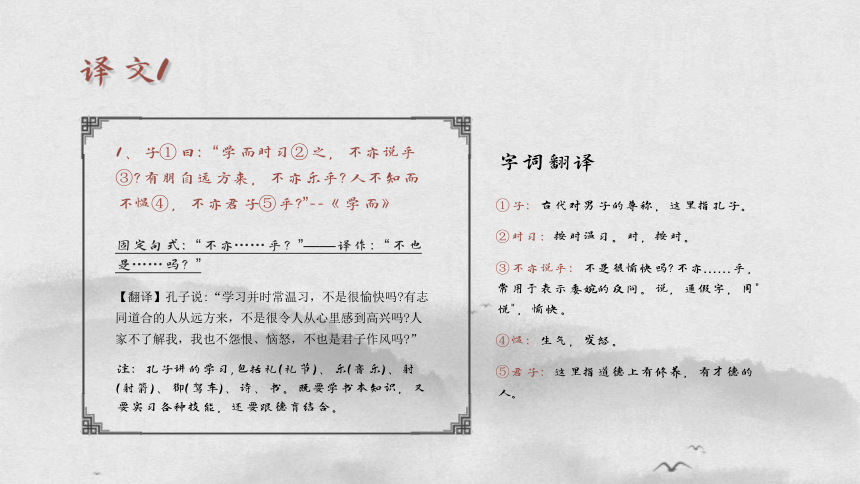 译文1
1、子①曰:“学而时习②之，不亦说乎
③?有朋自远方来，不亦乐乎?人不知而
不愠④，不亦君子⑤乎?”--《学而》
固定句式:“不亦……乎？”——译作:“不也
是……吗？”
【翻译】孔子说:“学习并时常温习，不是很愉快吗?有志
同道合的人从远方来，不是很令人从心里感到高兴吗?人
家不了解我，我也不怨恨、恼怒，不也是君子作风吗?”
注: 孔子讲的学习,包括礼(礼节)、乐(音乐)、射
(射箭)、御(驾车)、诗、书。既要学书本知识，又
要实习各种技能，还要跟德育结合。
字词翻译
①子：古代对男子的尊称，这里指孔子。
②时习：按时温习。时，按时。
③不亦说乎：不是很愉快吗?不亦……乎，
常用于表示委婉的反问。说，通假字，同"
悦"，愉快。
④愠：生气，发怒。
⑤君子：这里指道德上有修养，有才德的
人。